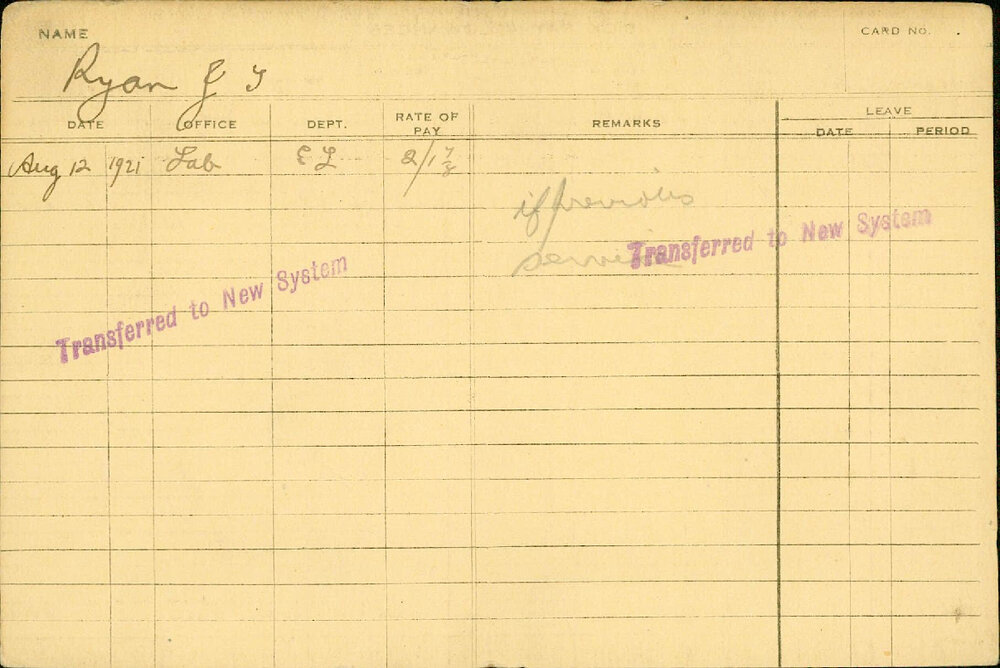 NAME
CARD NO.
Ryan J T
DATE OFFICE DEPT. RATE OF PAY REMARKS LEAVE
DATE PERIOD
Aug 12 1921 Lab E L 2/1 7/8
if previous
service
Transferred to New System
Transferred to New System